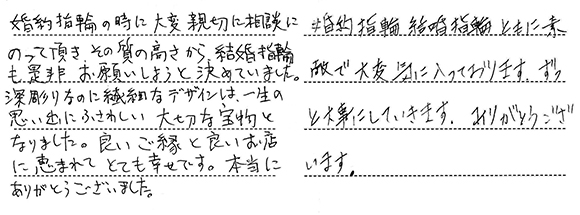 婚約指輪の時に大変親切に相談に
のって頂き その質の高さから、結婚指輪
も是非お願いしようと決めていました。
深彫りなのに繊細なデザインは、一生の
思い出にふさわしい 大切な宝物と
なりました。良いご縁と良いお店
に恵まれて とても幸せです。本当に
ありがとうございました。
婚約指輪 結婚指輪 ともに素
敵で大変気に入っております。ずっ
と大事にしていきます。ありがとうござ
います。